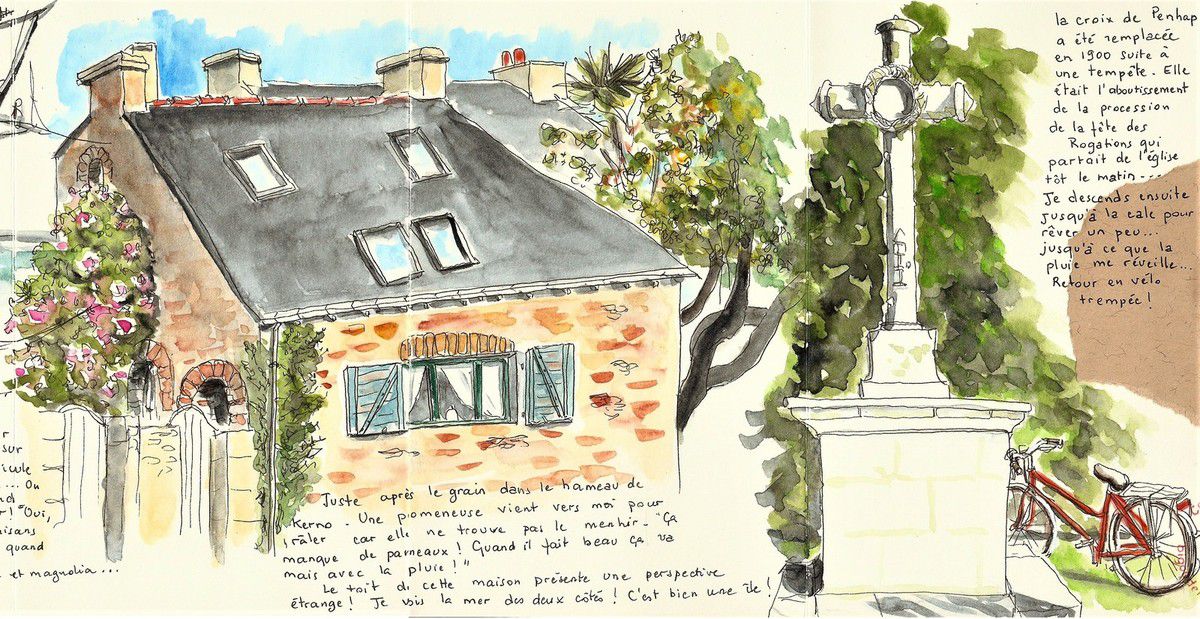 sur
icule
... Ou
r! "Oui,
isans
quand
et magnolia ...
Juste après le grain dans le hameau de
Kerno - Une promeneuse vient vers moi pour
râler car elle ne trouve pas le menhir - "Ça
manque de panneaux ! Quand il fait beau ça va
mais avec la pluie !"
Le toit de cette maison présente une perspective
étrange ! Je vois la mer des deux côtés ! C'est bien une île !
la croix de Penhap
a été remplacée
en 1900 suite à
une tempête. Elle
était l'aboutissement
de la procession
de la fête des
Rogations qui
partait de l'église
tôt le matin ---
Je descends ensuite
jusqu'à la cale pour
rêver un peu...
jusqu'à ce que la
pluie me réveille...
Retour en vélo
trempée !